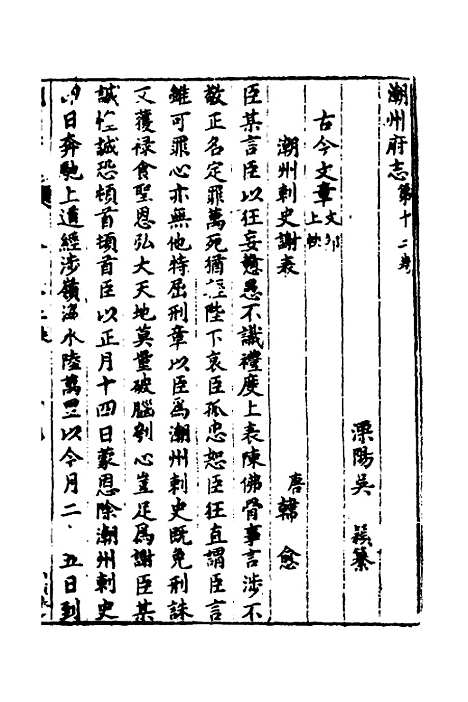 潮州府志第十二卷
溧陽吳 穎纂
古今文章文部上帙
潮州刺史謝表
唐韓 愈
臣某言臣以狂妄戇愚不識禮度上表陳佛骨事言涉不
敬正名定罪萬死猶輕陛下哀臣孤忠恕臣狂直謂臣言
雖可罪心亦無他特屈刑章以臣為潮州刺史既免刑誅
又獲祿食聖恩弘大天地莫量破腦刳心豈足為謝臣某
誠惶誠恐頓首頓首臣以正月十四日蒙恩除潮州刺史
即日奔馳上道經涉嶺海水陸萬里以今月二 五日到